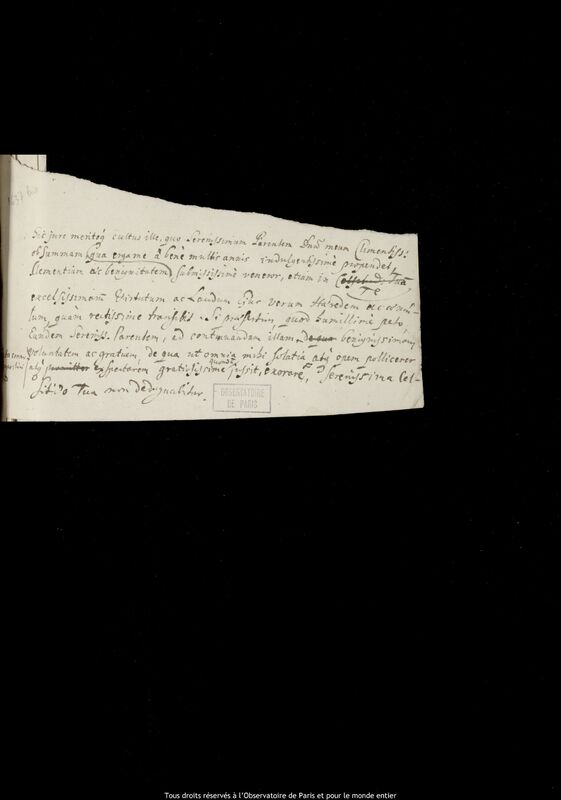 1637 bis
Sic jure meritoq cultus ille, quo Serenissimum Parentem Dnū meum Clementiss:
ob Summam qua erga me à bene multis annis indulgentissimè propendet,
Clementiam ac benignitatem submississimè veneror, etiam in Celsitud. Tuā
Te
excelsissimam Virtutum ac Laudum Ejus verum Hæredem ac
tum, quàm rectissime transfertur. Si præsertim, quod humillimè peto,
Eundem Sereniss. Parentem, ad continuandam illam, de qua benignissimam,
voluntatem ac gratiam, de qua ut omnia mihi solatia atq opem pollicerer
atq promitter expectarem gratiosissime quondā jussit, exorare, Serenissima Cel-
sit:do Tua non dedignabitur.
OBSERVATOIRE
DE PARIS
Tous droits réservés à l'Observatoire de Paris et pour le monde entier